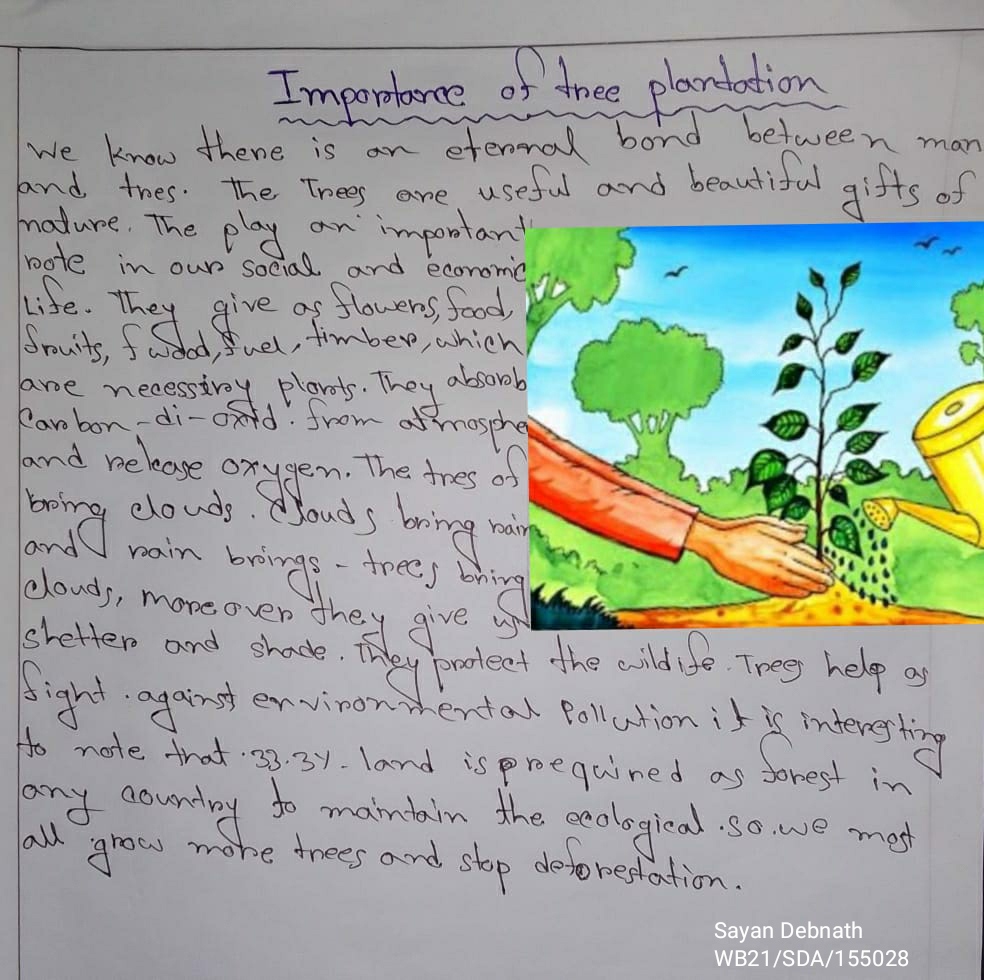 Importance of tree plantation
We know there is an eternal bond between man
and tres. The Trees are useful and beautiful gifts of
nature. The play an important
rote in our social and economic
Life. They give as flowers, food,
fruits, f wood, fuel, timber, which
are necessiry plants. They absorb
Carbon-di-oxid. from atmosphe
and release oxygen. The tres of
bring clouds. Clouds bring rain
and rain brings - trees bring
clouds, moreover they give
shetter and shade. They protect the wildife. Trees help as
fight. against environmental Pollution it is interesting
to note that. 33.3%. land is prequired as forest in
any country to maintain the ecological. so. we most
all grow more trees and stop deforestation.
Sayan Debnath
WB21/SDA/155028